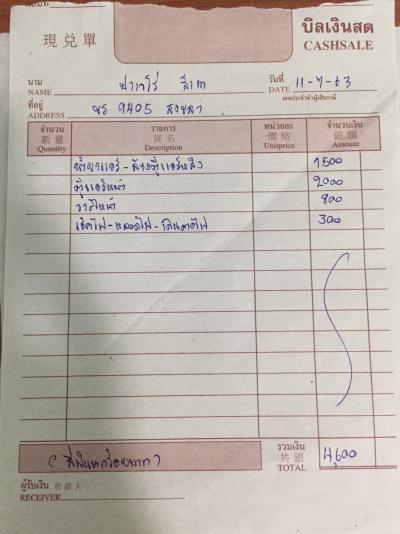 現兌單
บิลเงินสด
CASHSALE
นาม
NAME ปาเจโร่ สีเทา
วันที่
DATE 11-7-63
เลขประจำตัวผู้เสียภาษี
ที่อยู่
ADDRESS ขธ 9405 สงขลา
จำนวน รายการ หน่วยละ จำนวนเงิน
數量 貨名 價格 銀額
Quantity Description Unitprice Amount
น้ำยาแอร์-ล้างตู้แอร์หลัง 1500
ตู้แอร์หน้า 2000
วาล์วหน้า 800
เช็คไฟ-หลอดไฟ- 300
รวมเงิน
共銀
TOTAL 4,600
(สี่พันหกร้อยบาท)
ผู้รับเงิน 收銀人
RECEIVER